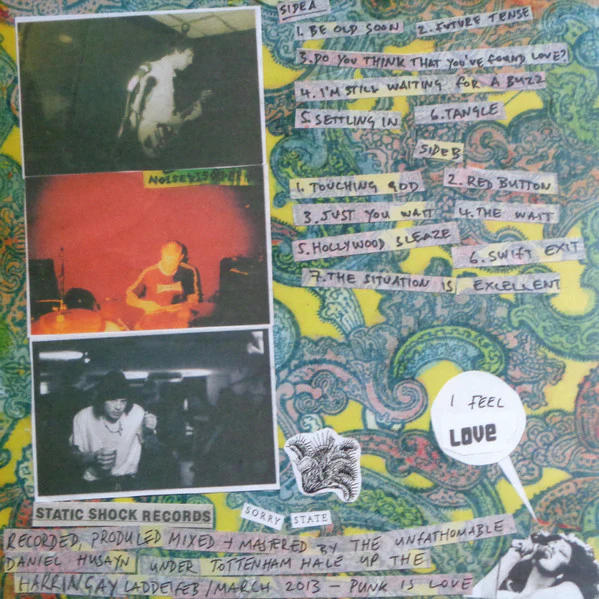 SIDE A
1. BE OLD SOON 2. FUTURE TENSE
3. DO YOU THINK THAT YOU'VE FOUND LOVE?
4. I'M STILL WAITING FOR A BUZZ
5. SETTLING IN 6. TANGLE
SIDE B
1. TOUCHING GOD 2. RED BUTTON
3. JUST YOU WAIT 4. THE WAIT
5. HOLLYWOOD SLEAZE 6. SWIFT EXIT
7. THE SITUATION IS EXCELLENT
I FEEL
LOVE
STATIC SHOCK RECORDS
SORRY STATE
RECORDED, PRODUCED MIXED + MASTERED BY THE UNFATHOMABLE
DANIEL HUSAYN UNDER TOTTENHAM HALE UP THE
HARRINGAY LADDER FEB/MARCH 2013 - PUNK IS LOVE